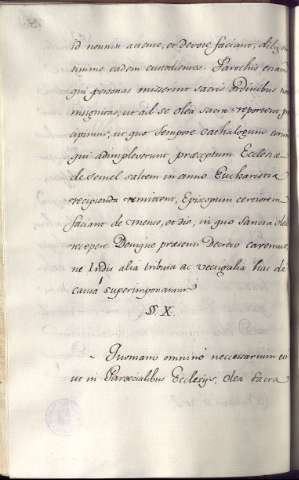 id nomine attente, et devote faciant, diligen
tissime eadem custodientes. Parochis etiam
qui personas miserint sacris Ordinibus non
insignitas, ut ad se olea sacra reportent, præ
cipimus, ut quo tempore cathalogum eorum
qui adimpleverunt præceptum Ecclesiæ
de semel saltem in anno Eucharistia
recipienda remittent, Episcopum certiorem
faciant de mense, et die, in quo sancta olea
recepere. Denique præsenti Decreto cavemus
ne Indis alia tributa ac vectigalia hac de
causa superimponantur.
§ X.
Quoniam omnino necessarium est
ut in Parrochialibus Ecclesijs, olea sacra